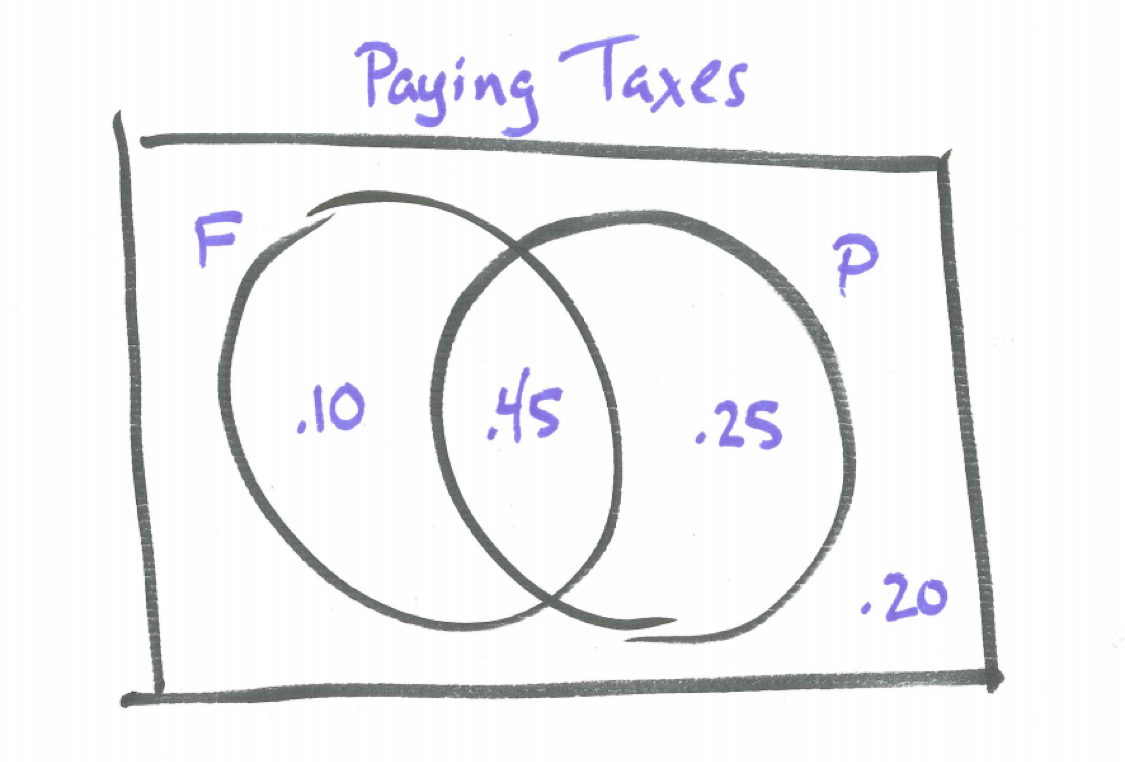 Paying Taxes
F
P
.10 .45 .25
.20